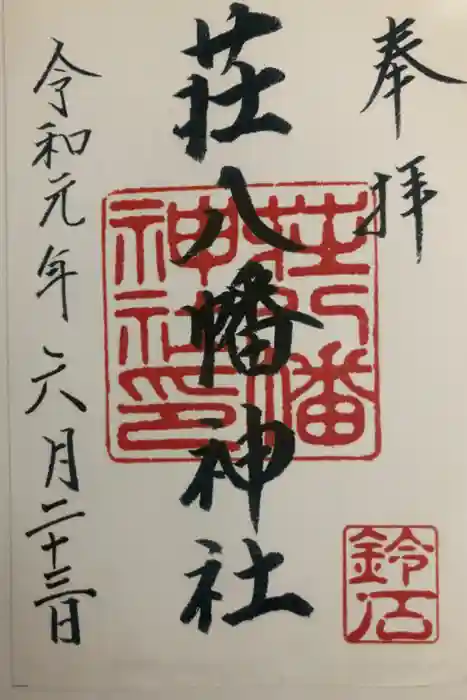 奉拝
荘八幡神社
令和元年六月二十三日
荘八幡
神社印
鈴石